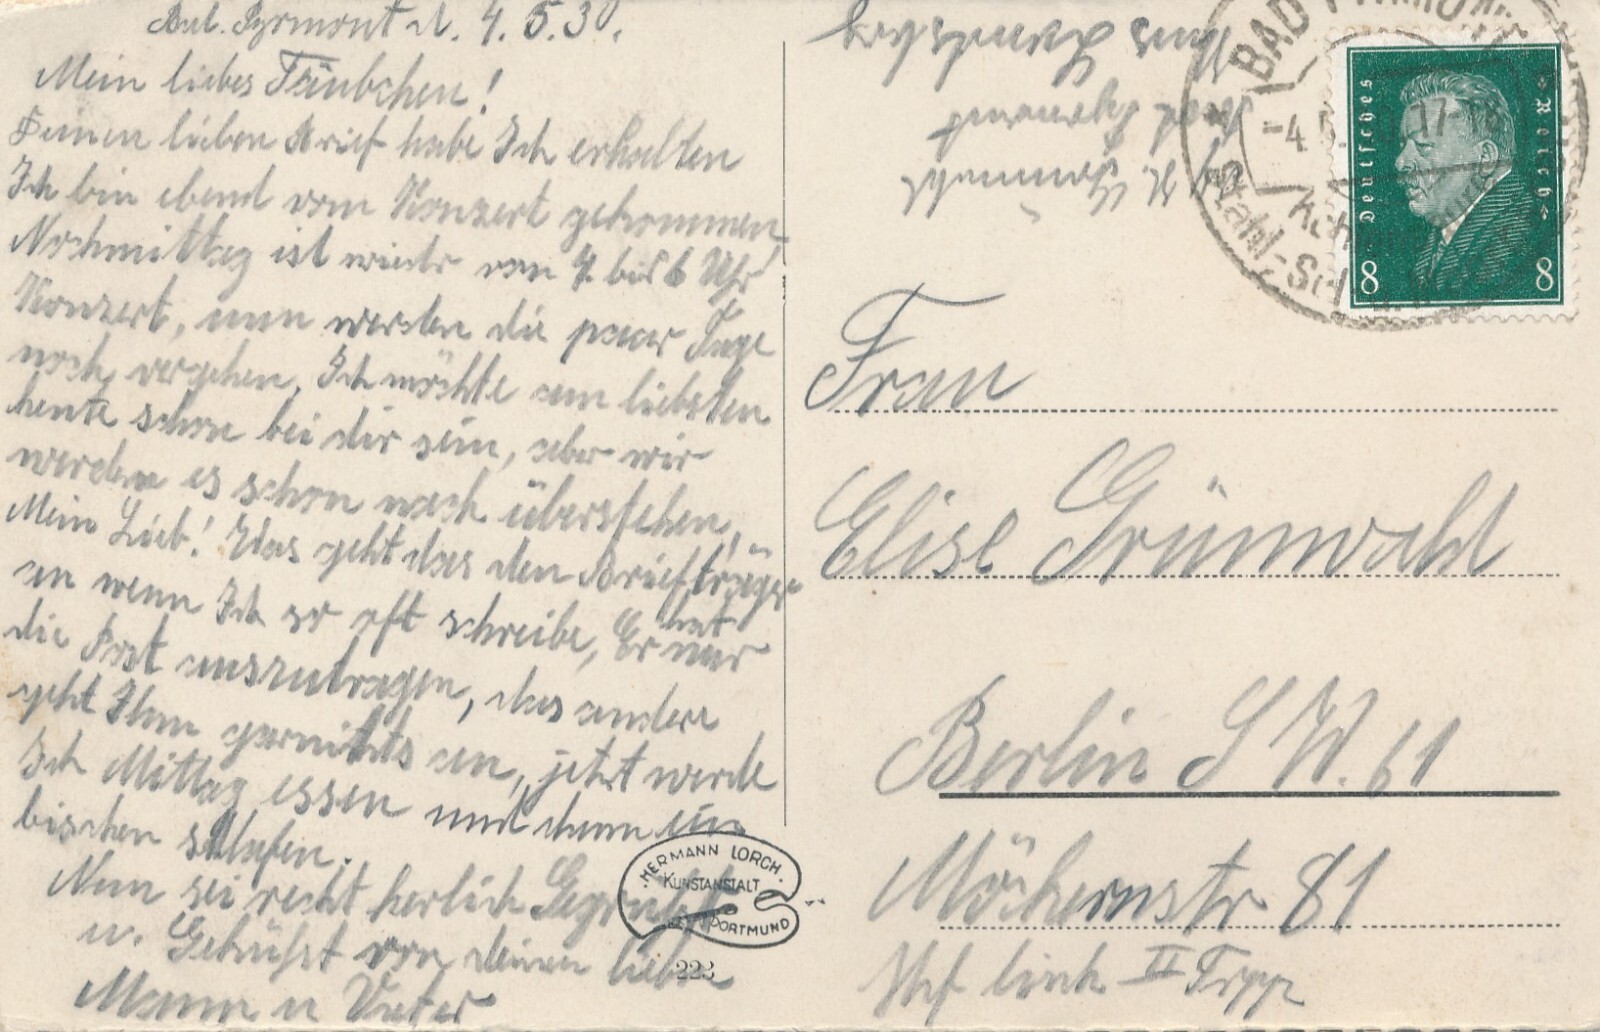 Bad. Pyrmont d. 4.5.30.
Mein liebes Täubchen!
Deinen lieben Brief habe Ich erhalten
Ich bin ebend vom Konzert gekommen
Nachmittag ist wieder von 4 bis 6 Uhr
Konzert, nun werden die paar Tage
noch vergehen, Ich möchte am liebsten
heute schon bei dir sein, aber wir
werden es schon noch überstehen,
Mein Lieb! Was geht das den Briefträger
an wenn Ich so oft schreibe, Er hat nur
die Post auszutragen, das andere
geht Ihm garnichts an, jetzt werde
Ich Mittag essen und dann ein
bischen schlafen.
Nun sei recht herlich Gegrüßt
u. Geküßt von deinen lieben
Mann u Vater
HERMANN LORCH
KUNSTANSTALT
DORTMUND
222
Abs. H. Grünwahl
Bad Pyrmont
Haus
BAD PYRMONT
-4.5. 17-18
Stahl-
Deutsches Reich
8 8
Frau
Elise Grünwahl
Berlin S W. 61
Möckernstr 81
Hof link II Trpp